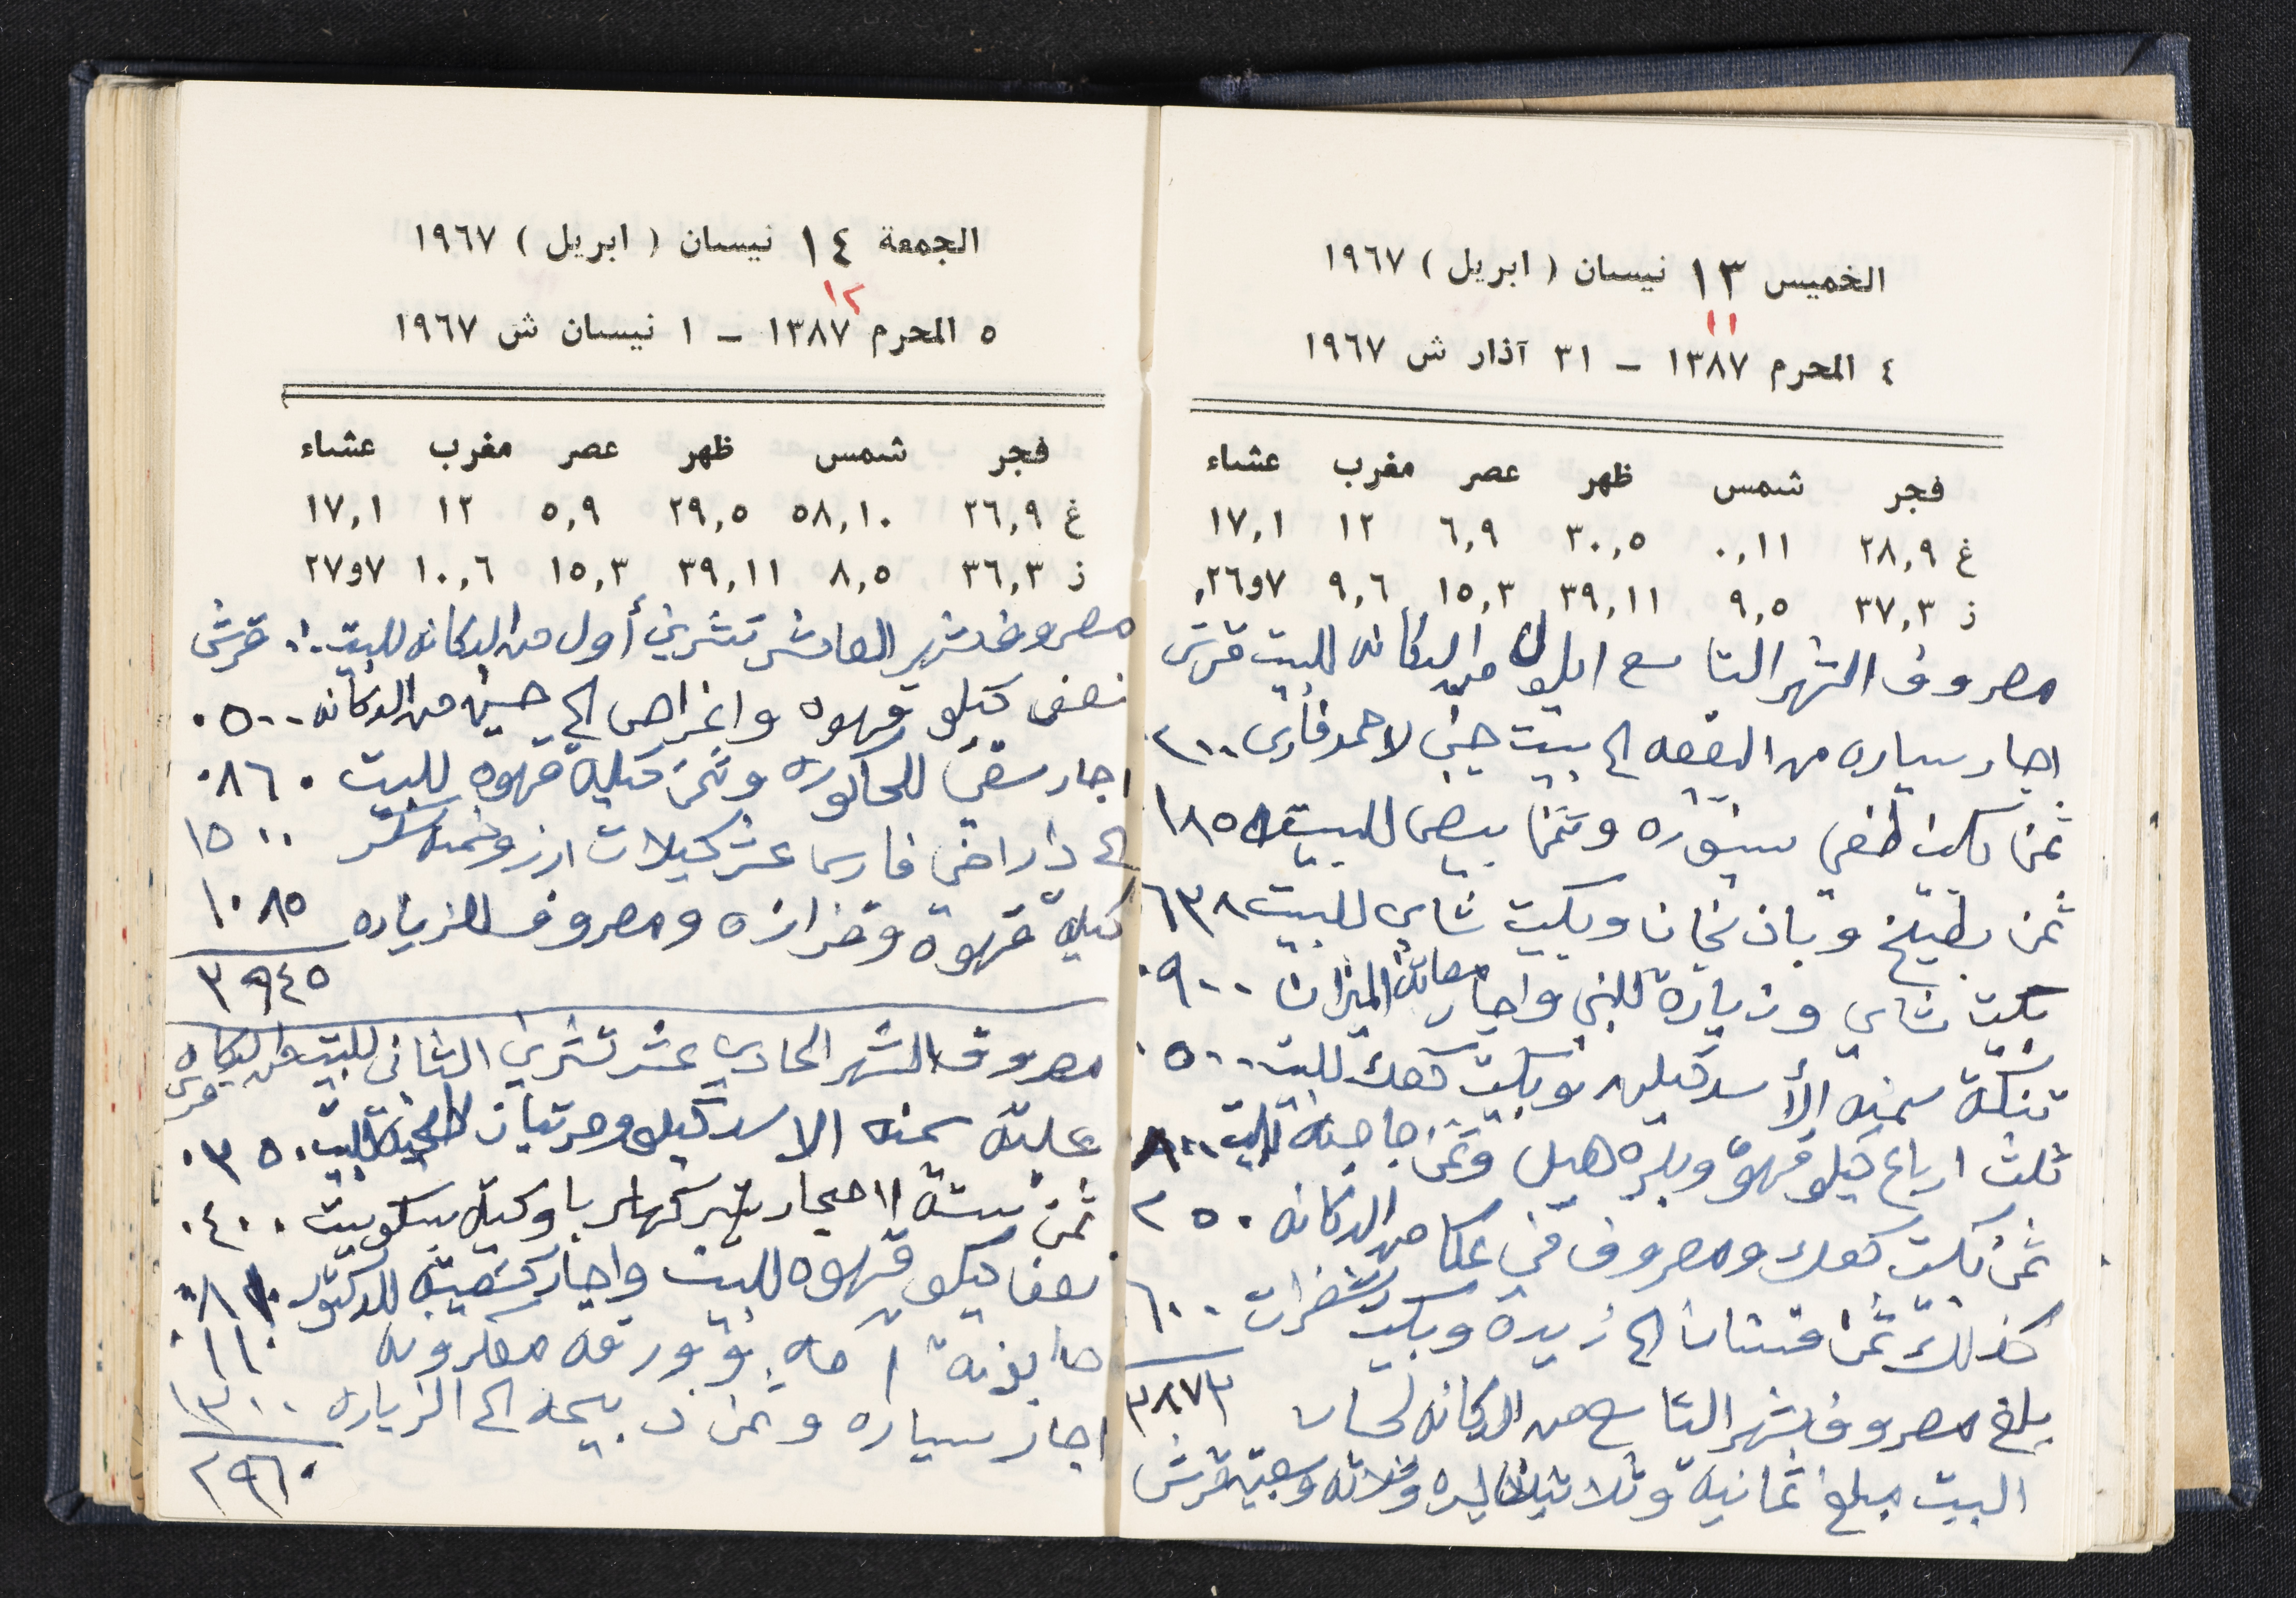 الخميس ١٣ نيسان ( ابريل ) ١٩٦٧
١١
٤ المحرم ١٣٨٧ - ٣١ آذار ش ١٩٦٧
فجر شمس ظهر عصر مغرب عشاء
غ ٢٨,٩ ٠,١١ ٣٠,٥ ٦,٩ ١٢ ١٧,١
ز ٣٧,٣ ٩,٥ ٣٩,١١ ١٥,٣ ٩,٦ ٧و٢٦
مصروف الشهر التاسع ايلول من الدكانه للبيت قرش
اجار سياره من البقعه الى بيت جن لاحمد فارس ٢٠٠
ثمن بكيت سنوره وثمن بيض للبيت ١٨٥
ثمن بطيخ وباذنجان وبكيت شاي للبيت ٦٣٨
بكيت شاي وزيارة للبني واجار الميزان ٩٠٠
تنكة سمنه الأسد كيلين وبكيت كعك للبيت ٥٠٠
ثلث ارباع كيلو قهوة وبذره هيل وثمن جاجه للبيت ٨٠٠
ثمن بكيت كعك ومصروف في عكا من الدكانه ٢٥٠
كذلك ثمن فستان الى زيدة وبكيت شفرات ٦٠٠
بلغ مصروف شهر التاسع من الدكانه لحساب ٣٨٧٣
البيت مبلغ ثمانية وثلاثين ليره وثلاثه وسبعين قرش
الجمعة ١٤ نيسان ( ابريل ) ١٩٦٧
١٢
٥ المحرم ١٣٨٧ - ١ نيسان ش ١٩٦٧
فجر شمس ظهر عصر مغرب عشاء
غ ٢٦,٩ ٥٨,١٠ ٢٩,٥ ٥,٩ ١٢ ١٧,١
ز ٣٦,٣ ٨,٥ ٣٩,١١ ١٥,٣ ١٠,٦ ٧و٢٧
مصروف شهر العاشر تشرين أول من الدكانه للبيت قرش
نصف كيلو قهوه واغراض الى حسين من الدكانه ٠٥٠٠
اجار سقي للحاكوره وثمن كيلة قهوه للبيت ٠٨٦٠
الى دار اخي فارس عشر كيلات ارز وخمسه سكر ١٥٠٠
كيلة قهوة وقزازه ومصروف للزياره ١٠٨٥
٣٩٤٥
مصروف الشهر الحادي عشر تشرين الثاني للبيت من الدكانه قرش
علبة سمنه الاسد كيل ومرتبان للبيت ٠٣٥٠
ثمن ستة احجار كهربا وكيلة بسكويت ٠٤٠٠
نصف كيلو قهوه للبيت واجار كشفيته للدكتور ٠٨٠٠
صابونة وورقه معكرونه ٠١١٠
اجار سياره وثمن ذبيحه الى الزياره ١٣٠٠
٢٩٦٠